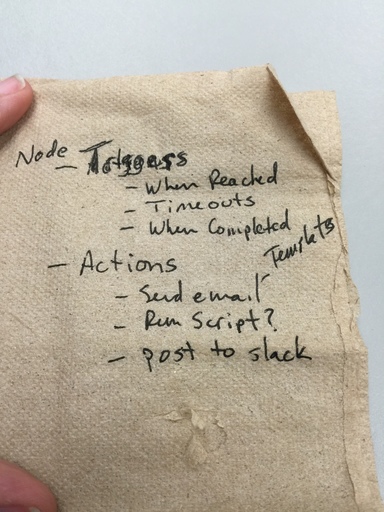 Node
- Triggers
- When Reached
- Timeouts
- When Completed
Templates
- Actions
- Send email
- Run Script?
- post to slack